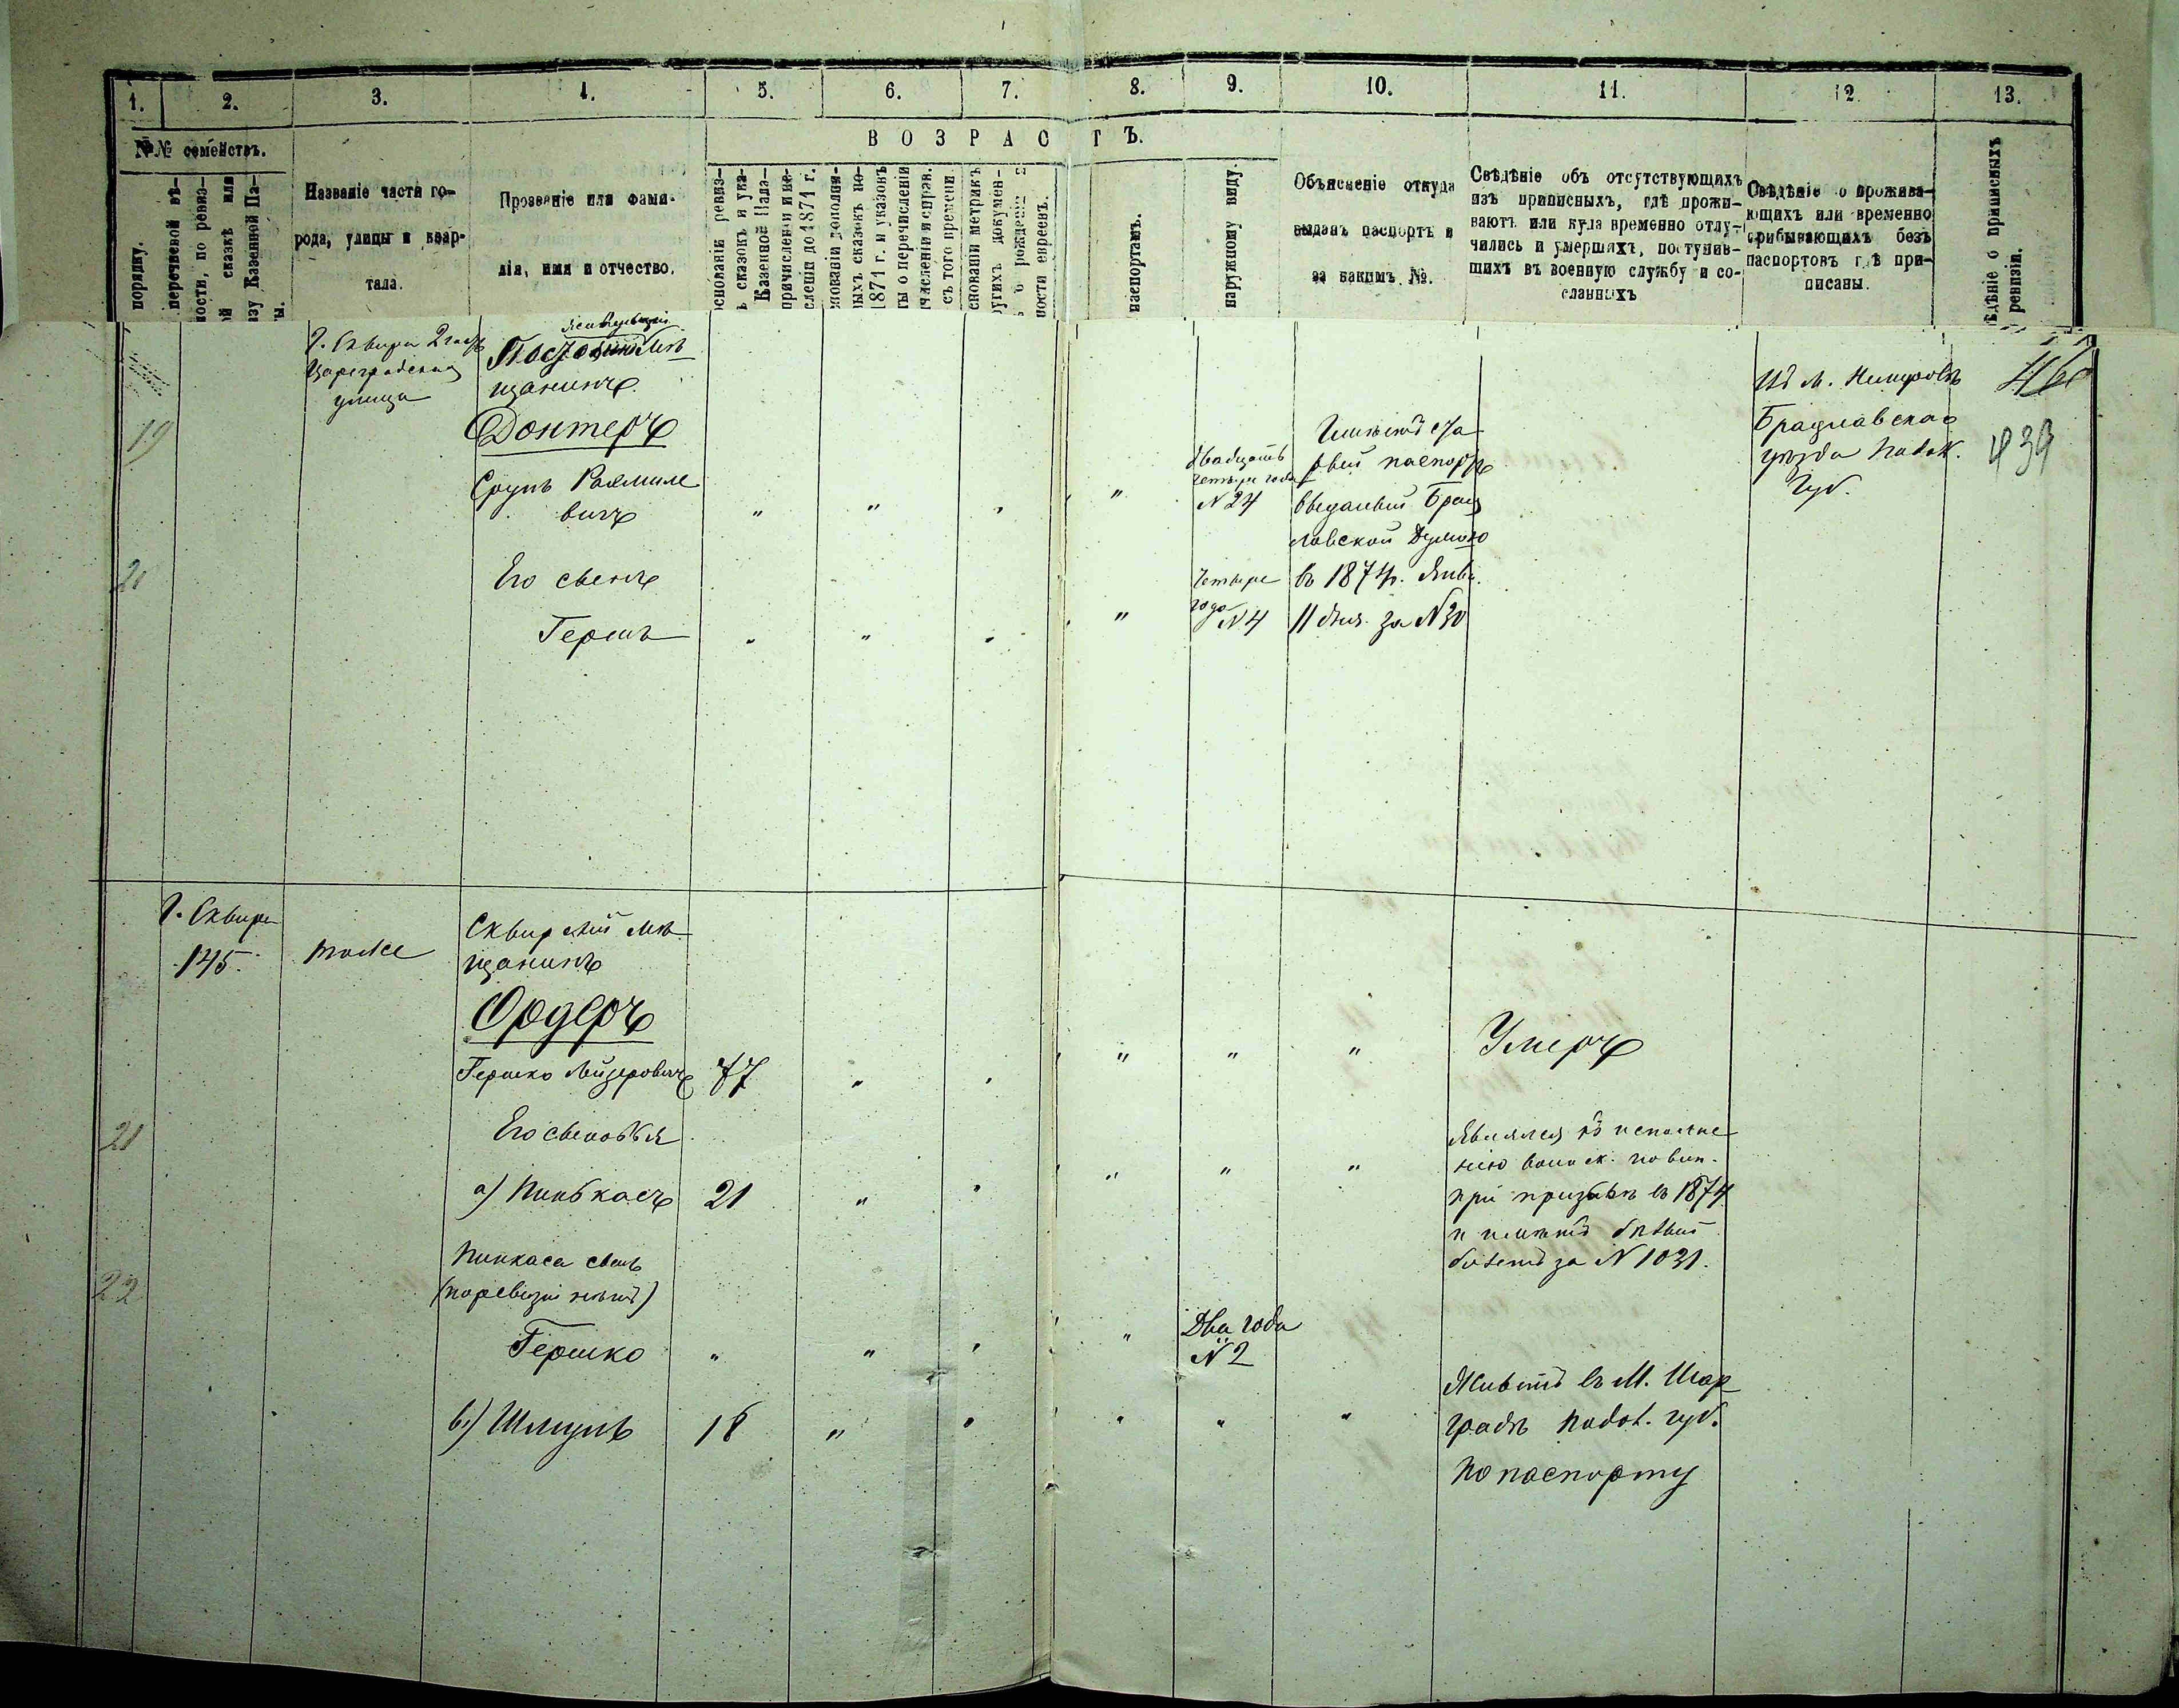 1. 2. 3. 4. 5. 6. 7. 8. 9. 10. 11. 12. 13.
№№ семействъ.
В О З Р А С Т Ъ.
порядку.
перечневой вѣ-
ности, по ревиз-
ой сказкѣ или
азу Казенной Па-
ты.
Названіе части го-
рода, улицы и квар-
тала.
Прозваніе или фами-
лія, имя и отчество.
основаніи ревиз-
ъ сказокъ и ука-
Казенной Пала-
причисленіи и ис-
сленіи до 1871 г.
нованіи дополни-
ныхъ сказокъ по-
1871 г. и указовъ
ты о перечисленіи
ичисленіи и справ.
съ того времени.
снованіи метрикъ
ругихъ докумен-
о рожденіи
ности евреевъ.
паспортамъ.
наружному виду.
Объясненіе откуда
выданъ паспортъ и
за какимъ №.
Свѣдѣніе объ отсутствующихъ
изъ приписныхъ, гдѣ прожи-
ваютъ или куда временно отлу-
чились и умершихъ, поступив-
шихъ въ военную службу и со-
сланныхъ
Свѣдѣніе о прожива-
ющихъ или временно
прибывающихъ безъ
паспортовъ гдѣ при-
писаны.
ѣдѣніе о приписныхъ
ревизіи.
Г. Сквира 2 часть
Цареградская
улица
Мѣ
щанинъ
Донтеръ
19
Сруль
вичъ
" " " "
двадцать
четыре года
N 24
Имѣетъ
паспортъ
выданый Брац
лавской Думою
въ 1874 г. Янв.
11 дня за N 30
Изъ м. Немирова
Брацлавскаго
уѣзда Подол.
Губ.
46
439
20
Его сынъ
Гершъ
" " " "
Четыре
года
N 4
Г. Сквира
145
тоже
Сквирскій мѣ
щанинъ
Ордеръ
Гершко Лейзеровичъ
77 " " " " "
Умеръ
21
Его сыновья
а) Пинькасъ 21 " " " " "
Являлся къ исполне
нію воинск. повин.
при призывѣ въ 1874
и имѣетъ
билетъ за N 1031.
22
Пинкаса сынъ
Гершко " " " "
Два года
N 2
в) Шмуль 18 " " " " "
Живетъ въ М. Шар
градѣ Подол. губ.
по паспорту